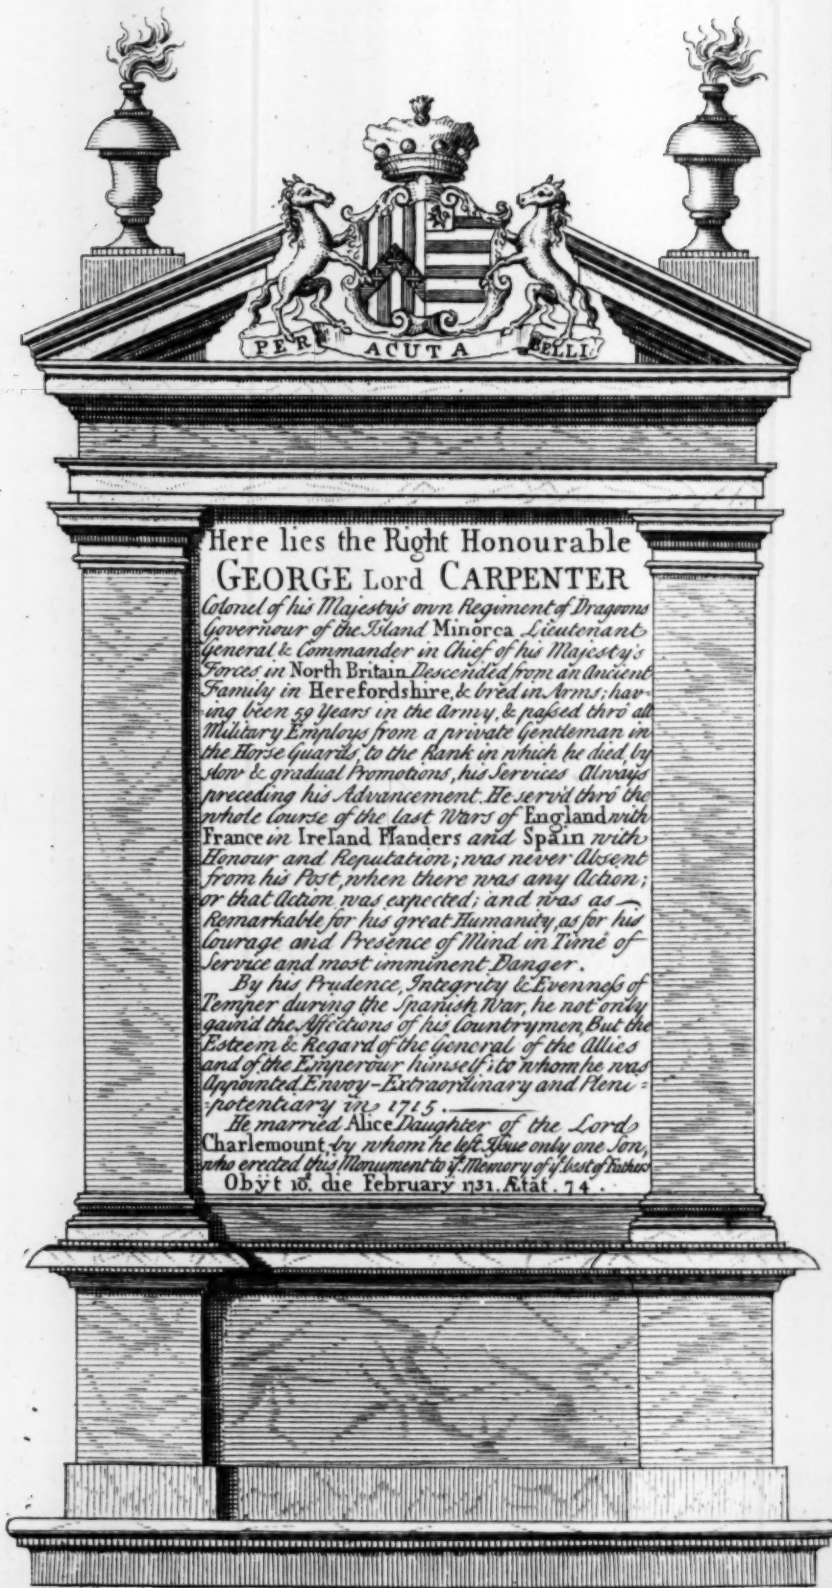 PER ACUTA BELLI
Here lies the Right Honourable
GEORGE Lord CARPENTER
Colonel of his Majesty's own Regiment of Dragoons
Governour of the Island Minorca Lieutenant
General & Commander in Chief of his Majesty's
Forces in North Britain Descended from an Ancient
Family in Herefordshire, & bred in Arms; hav-
ing been 59 Years in the Army, & passed thro' all
Military Employs from a private Gentleman in
the Horse Guards, to the Rank in which he died, by
slow & gradual Promotions, his Services Always
preceding his Advancement. He serv'd thro' the
whole Course of the last Wars of England with
France in Ireland Flanders and Spain with
Honour and Reputation; was never Absent
from his Post, when there was any Action;
or that Action was expected; and was as
Remarkable for his great Humanity, as for his
Courage and Presence of Mind in Time of
Service and most imminent Danger.
By his Prudence, Integrity & Evenness of
Temper during the Spanish War, he not only
gain'd the Affections of his Countrymen, But the
Esteem & Regard of the General of the Allies
and of the Emperour himself; to whom he was
Appointed Envoy-Extraordinary and Pleni=
=potentiary in 1715.
He married Alice Daughter of the Lord
Charlemount, by whom he left Issue only one Son,
who erected this Monument to ye. Memory of ye. best of Fathers
Obÿt 10o. die February 1731. Ætat. 74.